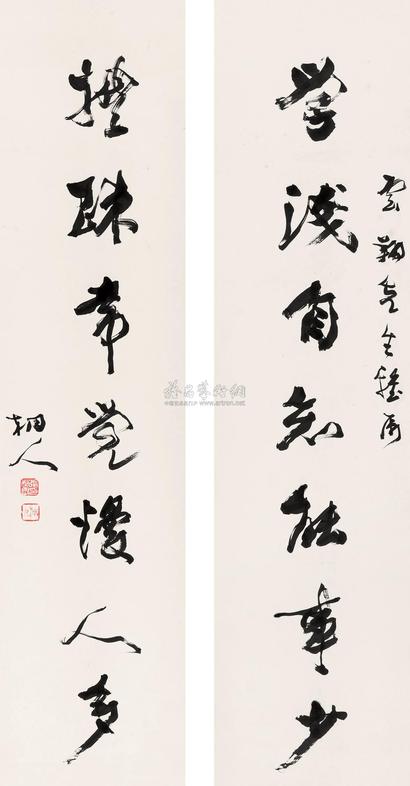 云翔先生雅属
学浅自知能事少
礼疏常觉慢人多
桐人
雅昌艺术网